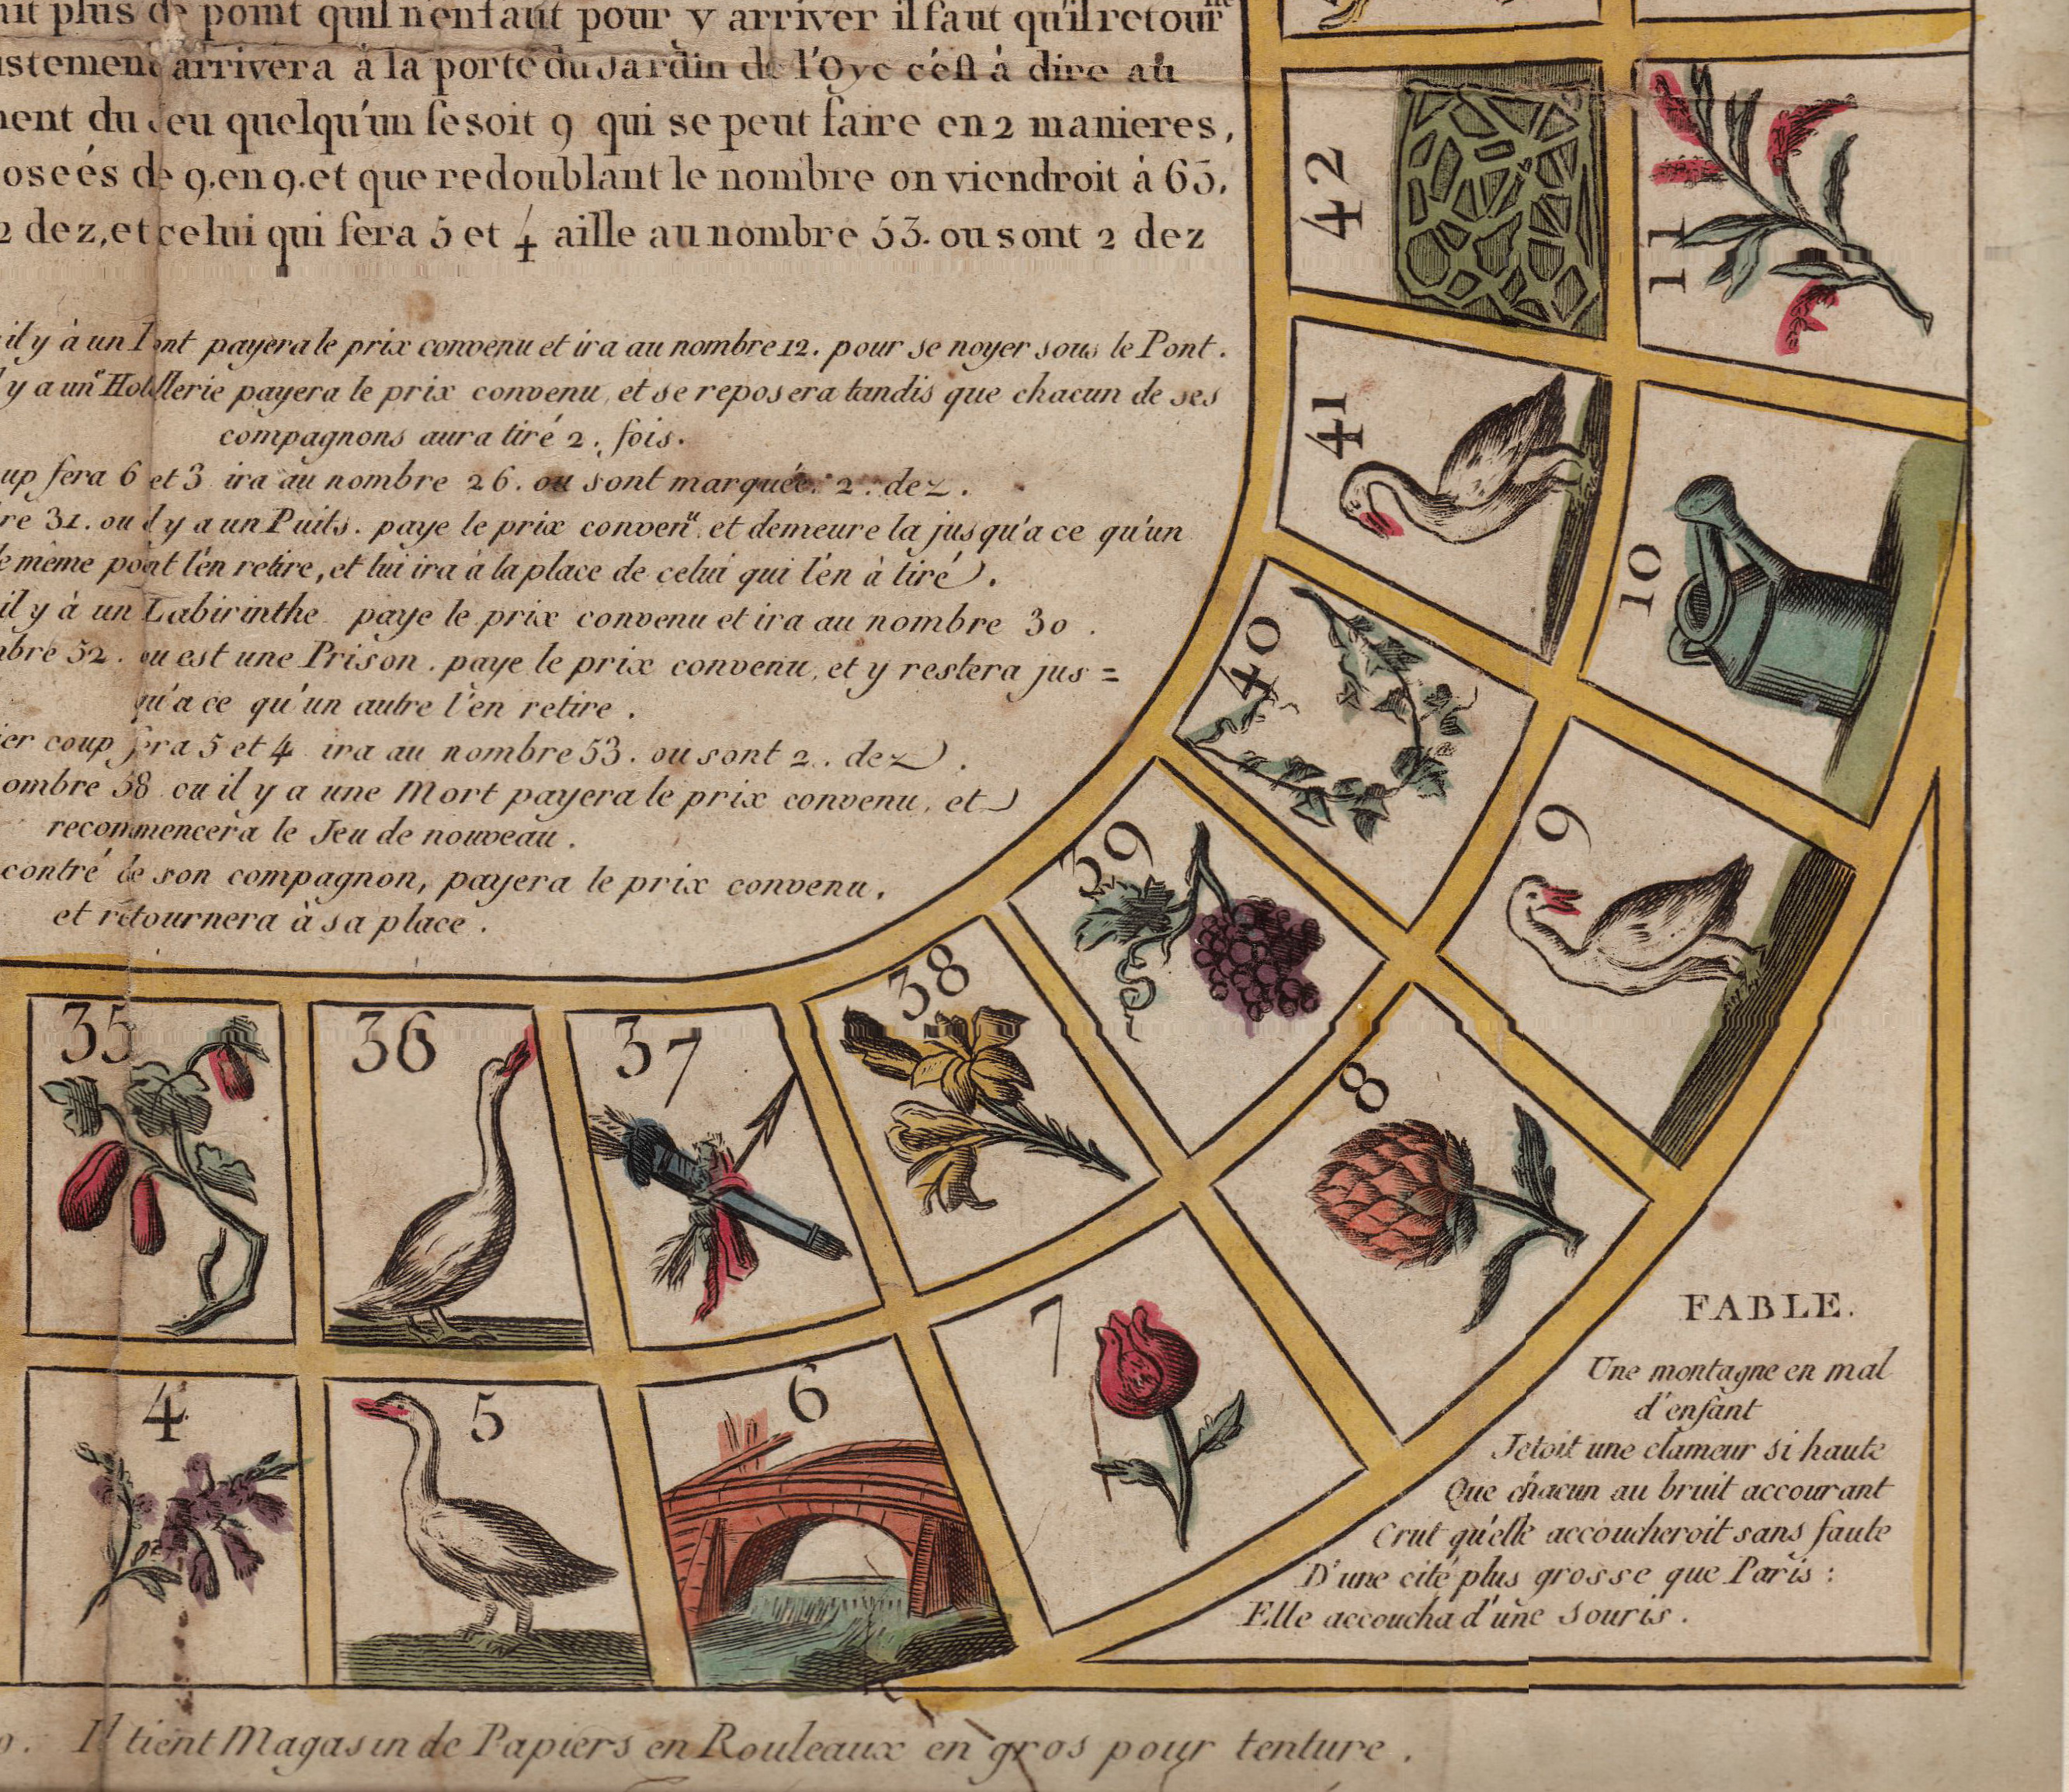 plus de point qu'il n'en faut pour y arriver il faut qu'il retourne
arrivera à la porte du Jardin de l'Oye c'est à dire au
du Jeu quelqu'un se soit 9 qui se peut faire en 2 manieres,
de 9. en 9. et que redoublant le nombre on viendroit à 63.
2 dez, et celui qui fera 5 et 4 aille au nombre 53. ou sont 2 dez
il y à un Pont payera le prix convenu et ira au nombre 12. pour se noyer sous le Pont.
y a une Hotellerie payera le prix convenu, et se reposera tandis que chacun de ses
compagnons aura tiré 2. fois.
fera 6 et 3 ira au nombre 26. ou sont marquée 2. dez.
31. ou il y a un Puits. paye le prix convenu et demeure la jusqu'a ce qu'un
même point l'én retire, et lui ira à la place de celui qui l'en à tiré.
il y à un Labirinthe paye le prix convenu et ira au nombre 30.
52. ou est une Prison. paye le prix convenu, et y restera jus=
qu'a ce qu'un autre l'en retire.
coup fera 5 et 4 ira au nombre 53. ou sont 2. dez.
58 ou il y a une Mort payera le prix convenu, et
recommencera le Jeu de nouveau.
contré de son compagnon, payera le prix convenu,
et retournera à sa place.
42
11
41
10
40
9
39
38
8
35
36
37
4
5
6
7
FABLE.
Une montagne en mal
d'enfant
Jetoit une clameur si haute
Que chacun au bruit accourant
Crut qu'elle accoucheroit sans faute
D'une cité plus grosse que Paris:
Elle accoucha d'une souris.
Il tient Magasin de Papiers en Rouleaux en gros pour tenture.